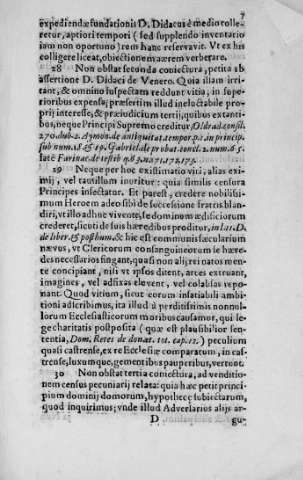 7
expediendæ fundationis D. Didacus è medio tolle-
retur, aptiori tempori (sed supplendo inventario
iam non oportuno) rem hanc reservavit. Vt ex his
colligere liceat, obiectionem aërem verberare.
28 Non obstat secunda coniectura, petita ab
assertione D. Didaci de Venero. Quia illam irri-
tant, & omnino suspectam reddunt vitia, in supe-
rioribus expensa, præsertim illud ineluctabile pro-
prij interesse, & præiudicium tertij, quibus extanti-
bus, neque Principi Supremo creditur, Oldrad. consil.
270. dub. 2. Aymon de antiquitat. tempor. p. 2. in princip.
sub num. 18. & 19. Gabriel de probat. concl. 2. num. 65.
latè Farinac. de testib. q. 85. n. 171. 172. 173.
29 Neque per hoc existimatio viri, alias exi-
mij, vel tantillum inoritur: quia similis censura
Principes insectatur. Et par est, credere nobilissi-
mum Heroem adeo sibi de successione fratris blan-
diri, vt illo adhuc vivente, se dominum ædisiciorum
crederet, sicuti de suis hæredibus proditur, in l. 11. D.
de liber. & posthum. & hic est communis sæcularium
nævus, vt Clericorum consanguineorum se hære-
des necessarios fingant, quasi non alij orci natos men-
te concipiant, nisi vt ipsos ditent, arces extruant,
imagines, vel adfixas elevent, vel colabsas repo-
nant. Quod vitium, sicut eorum insatiabili ambi-
tioni adscribimus, ita illud à perditissimis nonnul-
lorum Ecclesiasticorum moribus causamor, qui le-
ge charitatis postposita (quæ est plausibilior sen-
tentia, Dom. Retes de donat. tit. cap. 12.) peculium
quasi castrense, ex re Ecclesiæ comparatum, in cas-
trense, luxumque, gementibus pauperibus, vertunt.
30 Non obstat tertia coniectura, ad venditio-
nem census pecuniarij relata: quia hæc petit princi-
pium dominij domorum, hypothecę subiectarum,
quod inquirimus; vnde illud Adversarius alijs ar-
D gu-